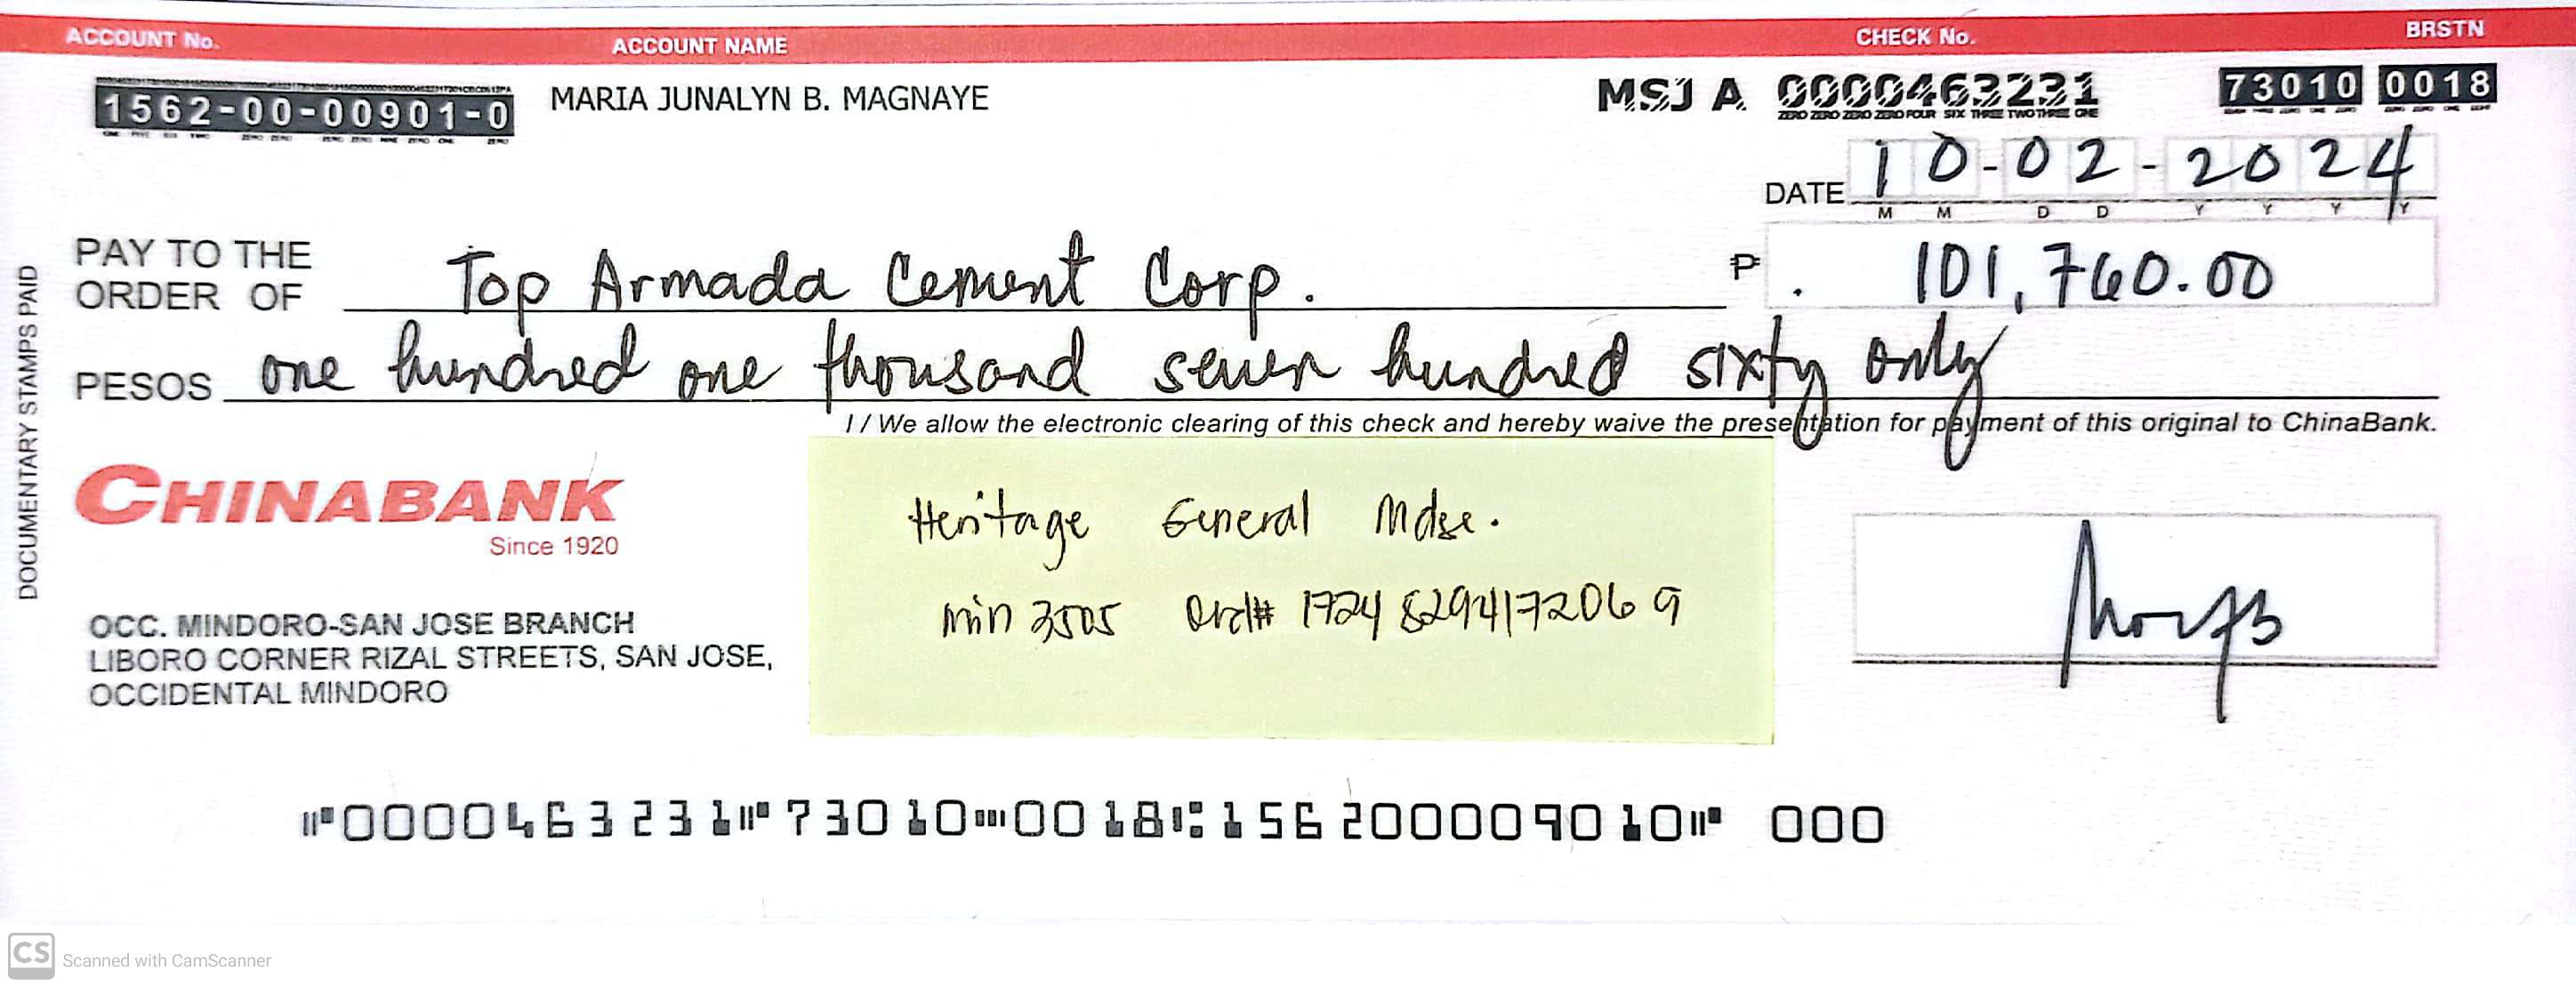 ACCOUNT No. ACCOUNT NAME CHECK No. BRSTN
1562-00-00901-0 MARIA JUNALYN B. MAGNAYE MSJ A 0000463231 73010 0018
ZERO ZERO ZERO ZERO FOUR SIX THREE TWO THREE ONE
DATE 10-02-2024
M M D D Y Y Y Y
PAY TO THE
ORDER OF Top Armada Cement Corp. ₱ 101,760.00
PESOS one hundred one thousand seven hundred sixty only
I / We allow the electronic clearing of this check and hereby waive the presentation for payment of this original to ChinaBank.
DOCUMENTARY STAMPS PAID
CHINABANK
Since 1920
OCC. MINDORO-SAN JOSE BRANCH
LIBORO CORNER RIZAL STREETS, SAN JOSE,
OCCIDENTAL MINDORO
Heritage General Mdse.
min 3505 Ord# 17248294172069
⑈0000463231⑈73010⑉0018⑆156200009010⑈ 000
CS Scanned with CamScanner